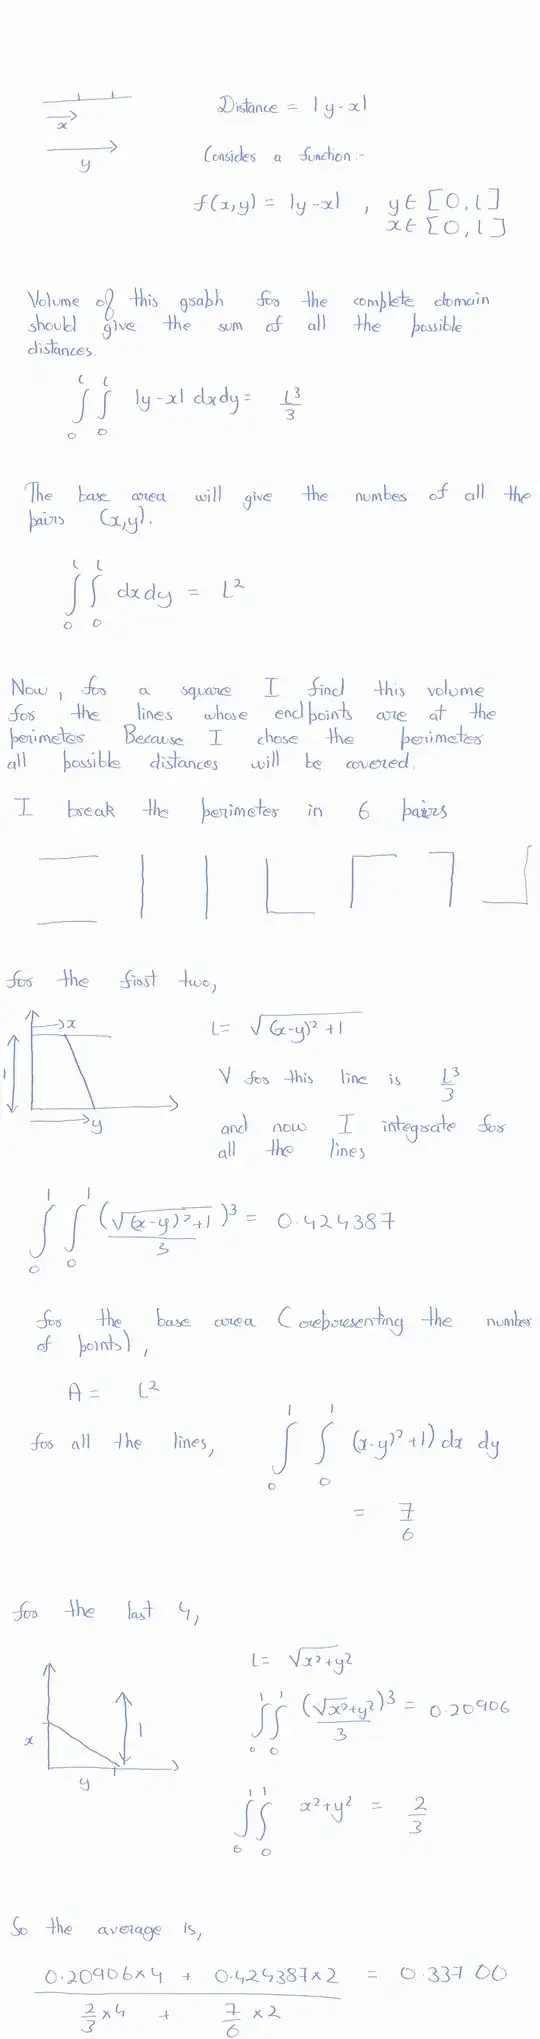 Distance = |y-x|
x
y
Consider a function:-
f(x,y) = |y-x| , y∈ [0,L]
x∈ [0,L]
Volume of this graph for the complete domain
should give the sum of all the possible
distances.
∫₀ᴸ ∫₀ᴸ |y-x| dxdy = L³/3
The base area will give the number of all the
pairs (x,y).
∫₀ᴸ ∫₀ᴸ dxdy = L²
Now, for a square I find this volume
for the lines whose endpoints are at the
perimeter Because I chose the perimeter
all possible distances will be covered.
I break the perimeter in 6 pairs
for the first two,
x
1
y
L= √((x-y)²+1)
V for this line is L³/3
and now I integrate for
all the lines
∫₀¹ ∫₀¹ (√((x-y)²+1))³/3 = 0.424387
for the base area (representing the number
of points),
A = L²
for all the lines, ∫₀¹ ∫₀¹ (x-y)²+1) dx dy
= 7/6
for the last 4,
x
y
1
L= √(x²+y²)
∫₀¹ ∫₀¹ (√(x²+y²))³/3 = 0.20906
∫₀¹ ∫₀¹ x²+y² = 2/3
So the average is,
(0.20906×4 + 0.424387×2)/(2/3 ×4 + 7/6 ×2) = 0.33700